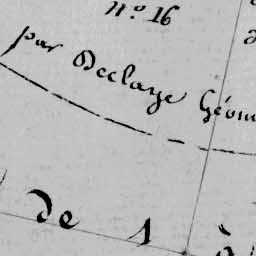 n.º 16
par Declaye Géom
de 1 à